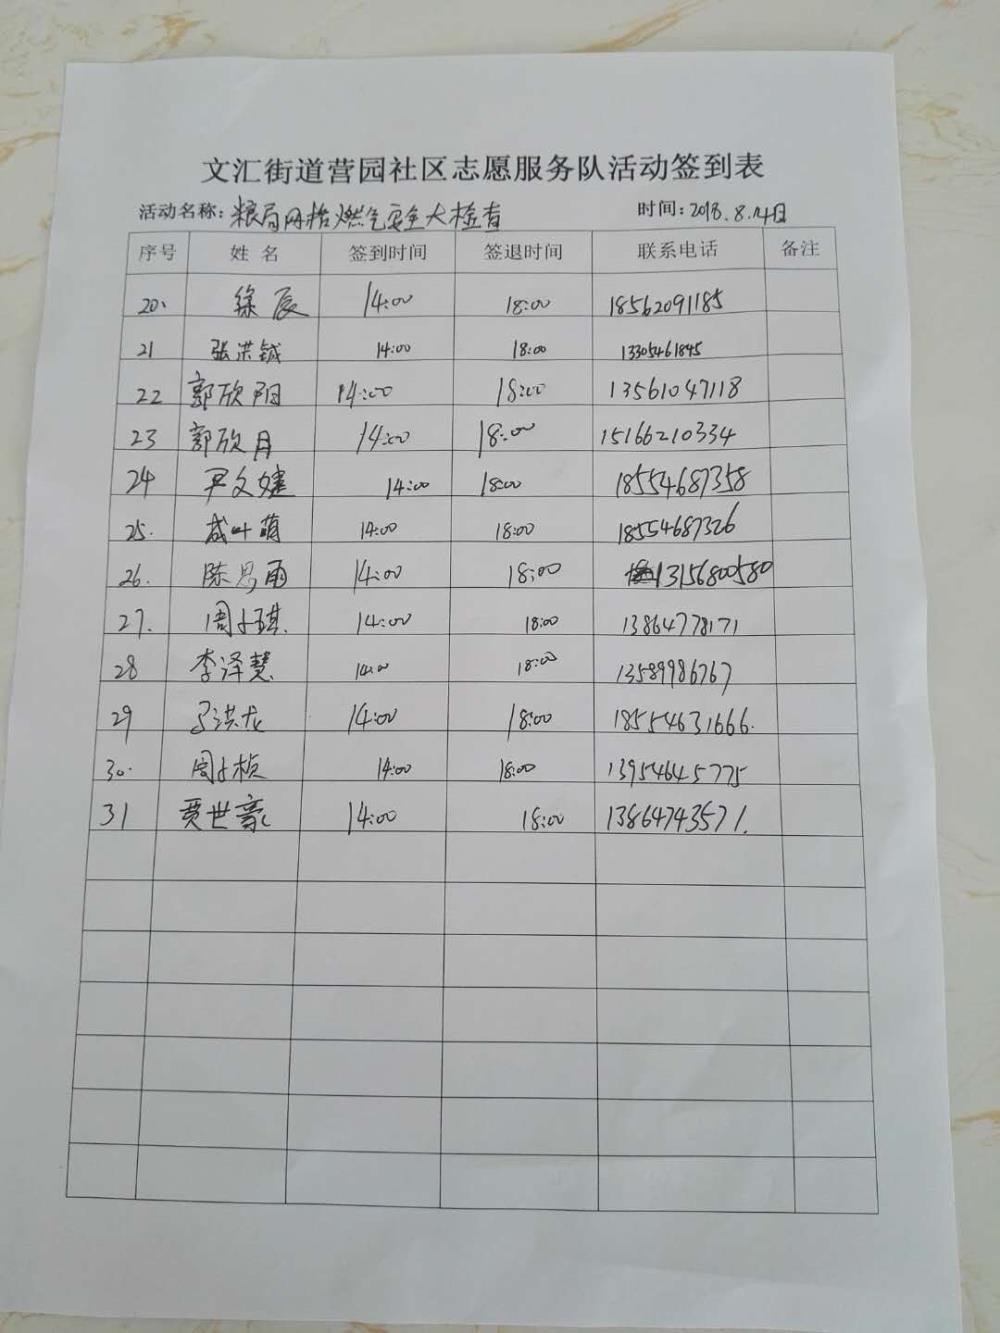 文汇街道营园社区志愿服务队活动签到表
活动名称：粮局网格燃气安全大检查 时间：2018.8.14日
序号 姓名 签到时间 签退时间 联系电话 备注
20. 徐辰 14:00 18:00 18562091185
21 张洪铖 14:00 18:00 13305461845
22 郭欣阳 14:00 18:00 13561047118
23 郭欣月 14:00 18:00 15166210334
24 尹文婕 14:00 18:00 18554687358
25. 叶萌 14:00 18:00 18554687326
26. 陈思雨 14:00 18:00 13156800580
27. 周子琪 14:00 18:00 13864778171
28 李泽慧 14:00 18:00 13589986767
29 马洪龙 14:00 18:00 18554631666.
30. 周子桢 14:00 18:00 13954645775
31 贾世豪 14:00 18:00 13864743571.